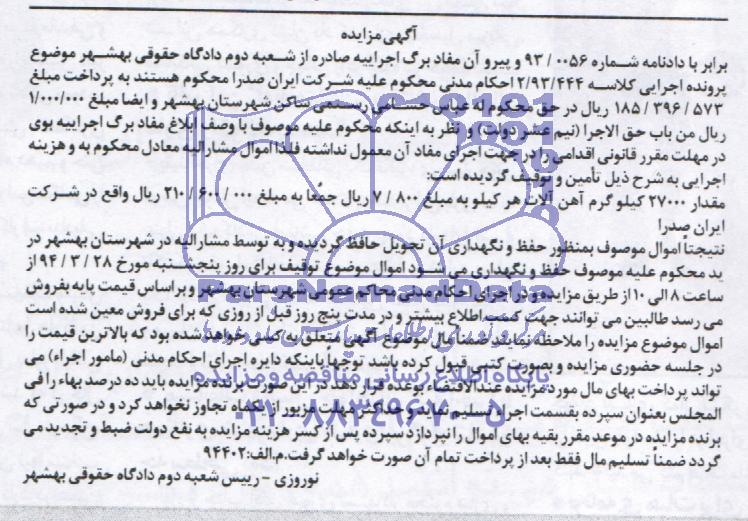 آگهی مزایده
برابر با دادنامه شماره ۰۰۵۶ / ۹۳ و پیرو آن مفاد برگ اجراییه صادره از شعبه دوم دادگاه حقوقی بهشهر موضوع
پرونده اجرایی کلاسه ۲/۹۳/۴۴۴ احکام مدنی محکوم علیه شرکت ایران صدرا محکوم هستند به پرداخت مبلغ
۵۷۳ / ۳۹۶ / ۱۸۵ ریال در حق محکوم له عباس حسامی رستمی ساکن شهرستان بهشهر و ایضا مبلغ ۱/۰۰۰/۰۰۰
ریال من باب حق الاجرا (نیم عشر دولت) و نظر به اینکه محکوم علیه موصوف با وصف ابلاغ مفاد برگ اجراییه بوی
در مهلت مقرر قانونی اقدامی را در جهت اجرای مفاد آن معمول نداشته فلذا اموال مشارالیه معادل محکوم به و هزینه
اجرایی به شرح ذیل تأمین و توقیف گردیده است:
مقدار ۲۷۰۰۰ کیلو گرم آهن آلات هر کیلو به مبلغ ۸۰۰ / ۷ ریال جمعا به مبلغ ۰۰۰ / ۶۰۰ / ۲۱۰ ریال واقع در شرکت
ایران صدرا
نتیجتا اموال موصوف بمنظور حفظ و نگهداری آن تحویل حافظ گردیده و به توسط مشارالیه در شهرستان بهشهر در
ید محکوم علیه موصوف حفظ و نگهداری می شود اموال موضوع توقیف برای روز پنجشنبه مورخ ۲۸ / ۳ / ۹۴ از
ساعت ۸ الی ۱۰ از طریق مزایده و در اجرای احکام مدنی محاکم عمومی شهرستان بهشهر و براساس قیمت پایه بفروش
می رسد طالبین می توانند جهت کسب اطلاع بیشتر و در مدت پنج روز قبل از روزی که برای فروش معین شده است
اموال موضوع مزایده را ملاحظه نمایند ضمنا مال موضوع آگهی متعلق به کسی خواهد شد بود که بالاترین قیمت را
در جلسه حضوری مزایده و بصورت کتبی قبول کرده باشد توجها باینکه دایره اجرای احکام مدنی (مامور اجراء) می
تواند پرداخت بهای مال مورد مزایده عندالاقتضاء بوعده قرار دهد در این صورت برنده مزایده باید ده درصد بهاء را فی
المجلس بعنوان سپرده بقسمت اجراء تسلیم نماید و حداکثر مهلت مزبور از یکماه تجاوز نخواهد کرد و در صورتی که
برنده مزایده در موعد مقرر بقیه بهای اموال را نپردازد سپرده پس از کسر هزینه مزایده به نفع دولت ضبط و تجدید می
گردد ضمناً تسلیم مال فقط بعد از پرداخت تمام آن صورت خواهد گرفت.م.الف:۹۴۴۰۲
نوروزی - رییس شعبه دوم دادگاه حقوقی بهشهر
ParsNamadData
پایگاه اطلاع رسانی مناقصه و مزایده
۰۲۱-۸۸۳۴۹۶۷۰-۵